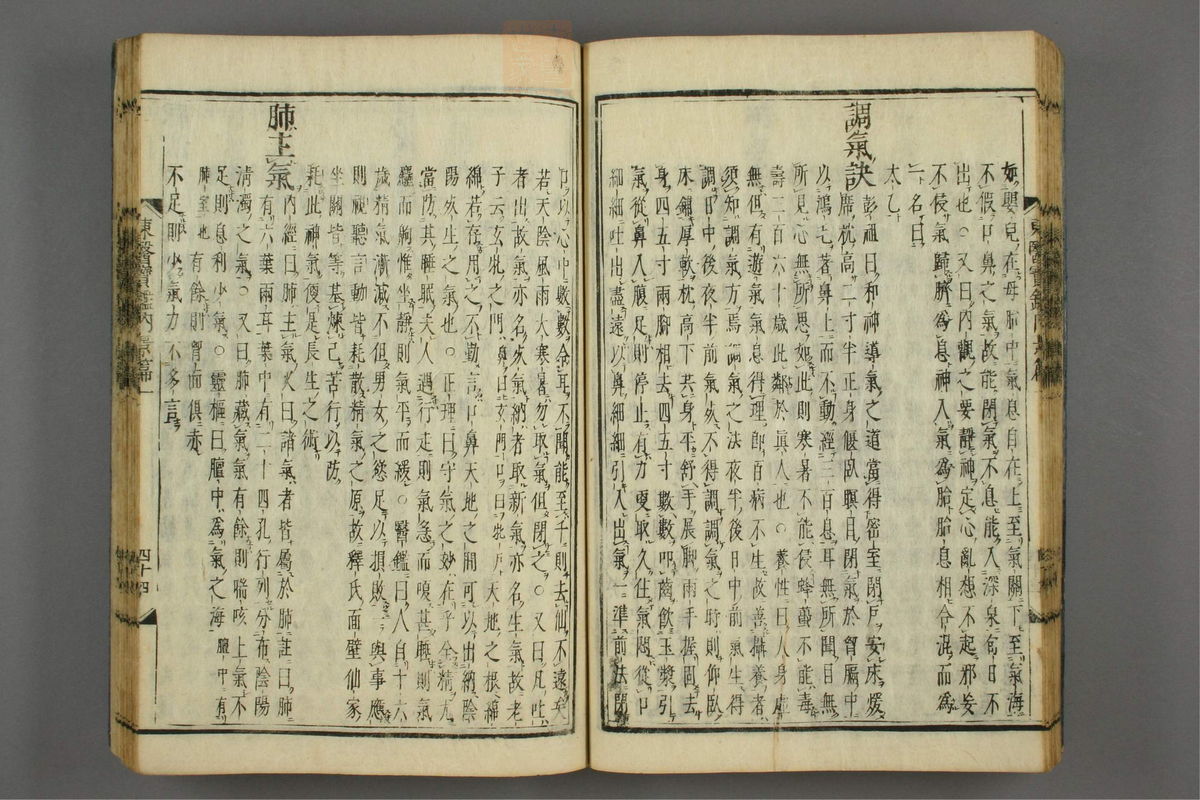 如嬰兒在母胎中氣息自在上至氣關下至氣海
不假口鼻之氣故能閉氣不息能入深泉旬日不
出也○又曰內觀之要靜神定心亂想不起邪妄
不侵氣歸臍為息神入氣為胎胎息相合混而為
一名曰
太乙
調氣訣
彭祖曰和神導氣之道當得密室閉戶安床煖
席枕高二寸半正身偃臥瞑目閉氣於胷膈中
以鴻毛著鼻上而不動經三百息耳無所聞目無
所見心無所思如此則寒暑不能侵蜂蠆不能毒
壽三百六十歲此鄰於眞人也○養性曰人身虛
無但有遊氣氣息得理即百病不生故善攝養者
須知調氣方焉調氣之法夜半後日中前氣生得
調日中後夜半前氣死不得調調氣之時則仰臥
床鋪厚軟枕高下共身平舒手展脚兩手握固去
身四五寸兩脚相去四五寸數數叩齒飲玉漿引
氣從鼻入腹足則停止有力更取久住氣悶從口
細細吐出盡遠以鼻細細引入出氣一準前法閉
口以心中數數令耳不聞能至千則去仙不遠矣
若天陰風雨大寒暑勿取氣但閉之○又曰凡吐
者出故氣亦名死氣納者取新氣亦名生氣故老
子云玄牝之門鼻曰玄門口曰牝戶天地之根綿
綿若存用之不勤言口鼻天地之間可以出納陰
陽死生之氣也○正理曰守氣之妙在乎全精尤
當防其睡眠夫人遇行走則氣急而嗄甚睡則氣
麤而齁惟坐靜則氣平而緩○醫鑑曰人自十六
歲精氣漸減不但男女之慾足以損敗一與事應
則視聽言動皆耗散精氣之原故釋氏面壁仙家
坐關皆等基煉己苦行以防
耗此神氣便是長生之術
肺主氣
內經曰肺主氣又曰諸氣者皆屬於肺註曰肺
有六葉兩耳葉中有二十四孔行列分布陰陽
淸濁之氣○又曰肺藏氣氣有餘則喘咳上氣不
足則息利少氣○靈樞曰膻中為氣之海膻中有
肺室也有餘則胷而俱赤
不足則少氣力不多言
東醫寶鑑內景篇一
四十四